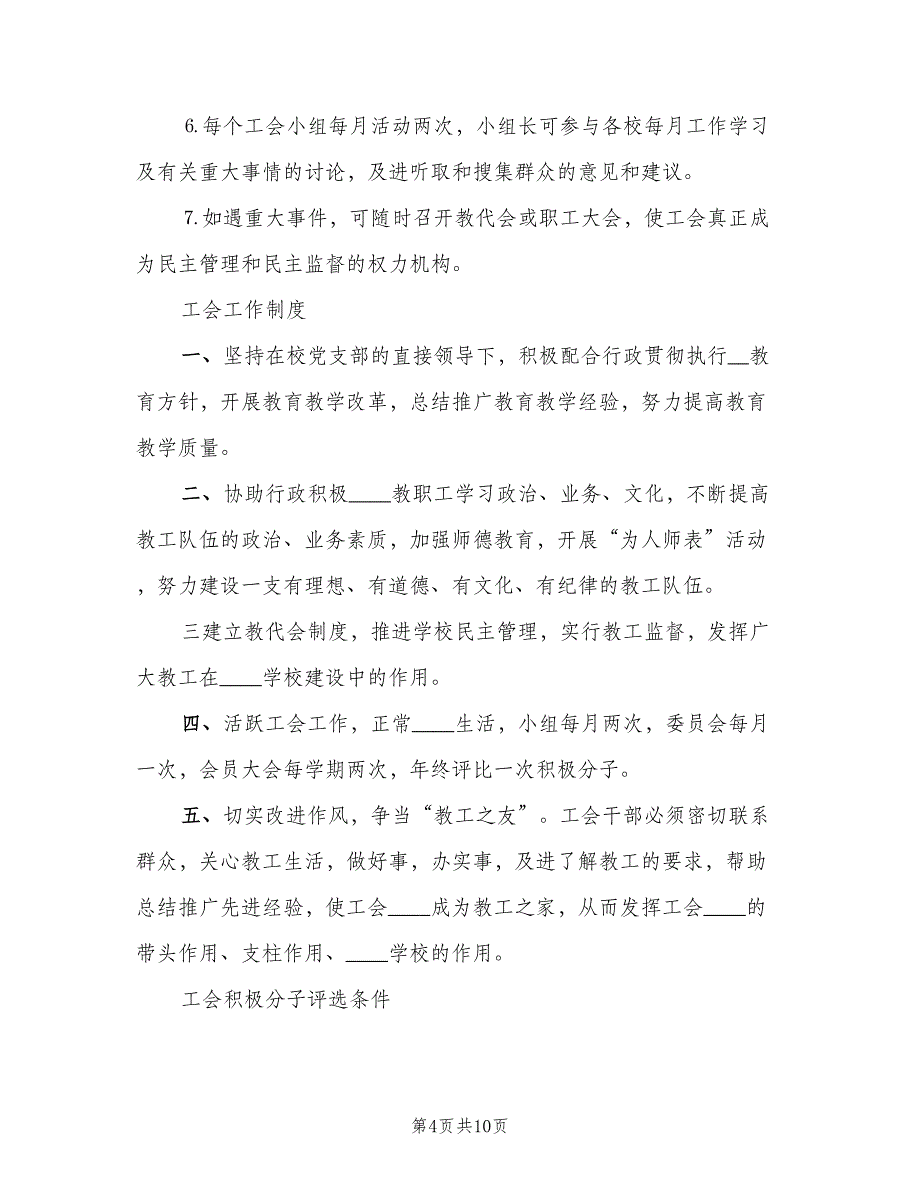 6.每个工会小组每月活动两次，小组长可参与各校每月工作学习
及有关重大事情的讨论，及进听取和搜集群众的意见和建议。
7.如遇重大事件，可随时召开教代会或职工大会，使工会真正成
为民主管理和民主监督的权力机构。
工会工作制度
一、坚持在校党支部的直接领导下，积极配合行政贯彻执行__教
育方针，开展教育教学改革，总结推广教育教学经验，努力提高教育
教学质量。
二、协助行政积极____教职工学习政治、业务、文化，不断提高
教工队伍的政治、业务素质，加强师德教育，开展“为人师表”活动
，努力建设一支有理想、有道德、有文化、有纪律的教工队伍。
三建立教代会制度，推进学校民主管理，实行教工监督，发挥广
大教工在____学校建设中的作用。
四、活跃工会工作，正常____生活，小组每月两次，委员会每月
一次，会员大会每学期两次，年终评比一次积极分子。
五、切实改进作风，争当“教工之友”。工会干部必须密切联系
群众，关心教工生活，做好事，办实事，及进了解教工的要求，帮助
总结推广先进经验，使工会____成为教工之家，从而发挥工会____的
带头作用、支柱作用、____学校的作用。
工会积极分子评选条件
第4页共10页